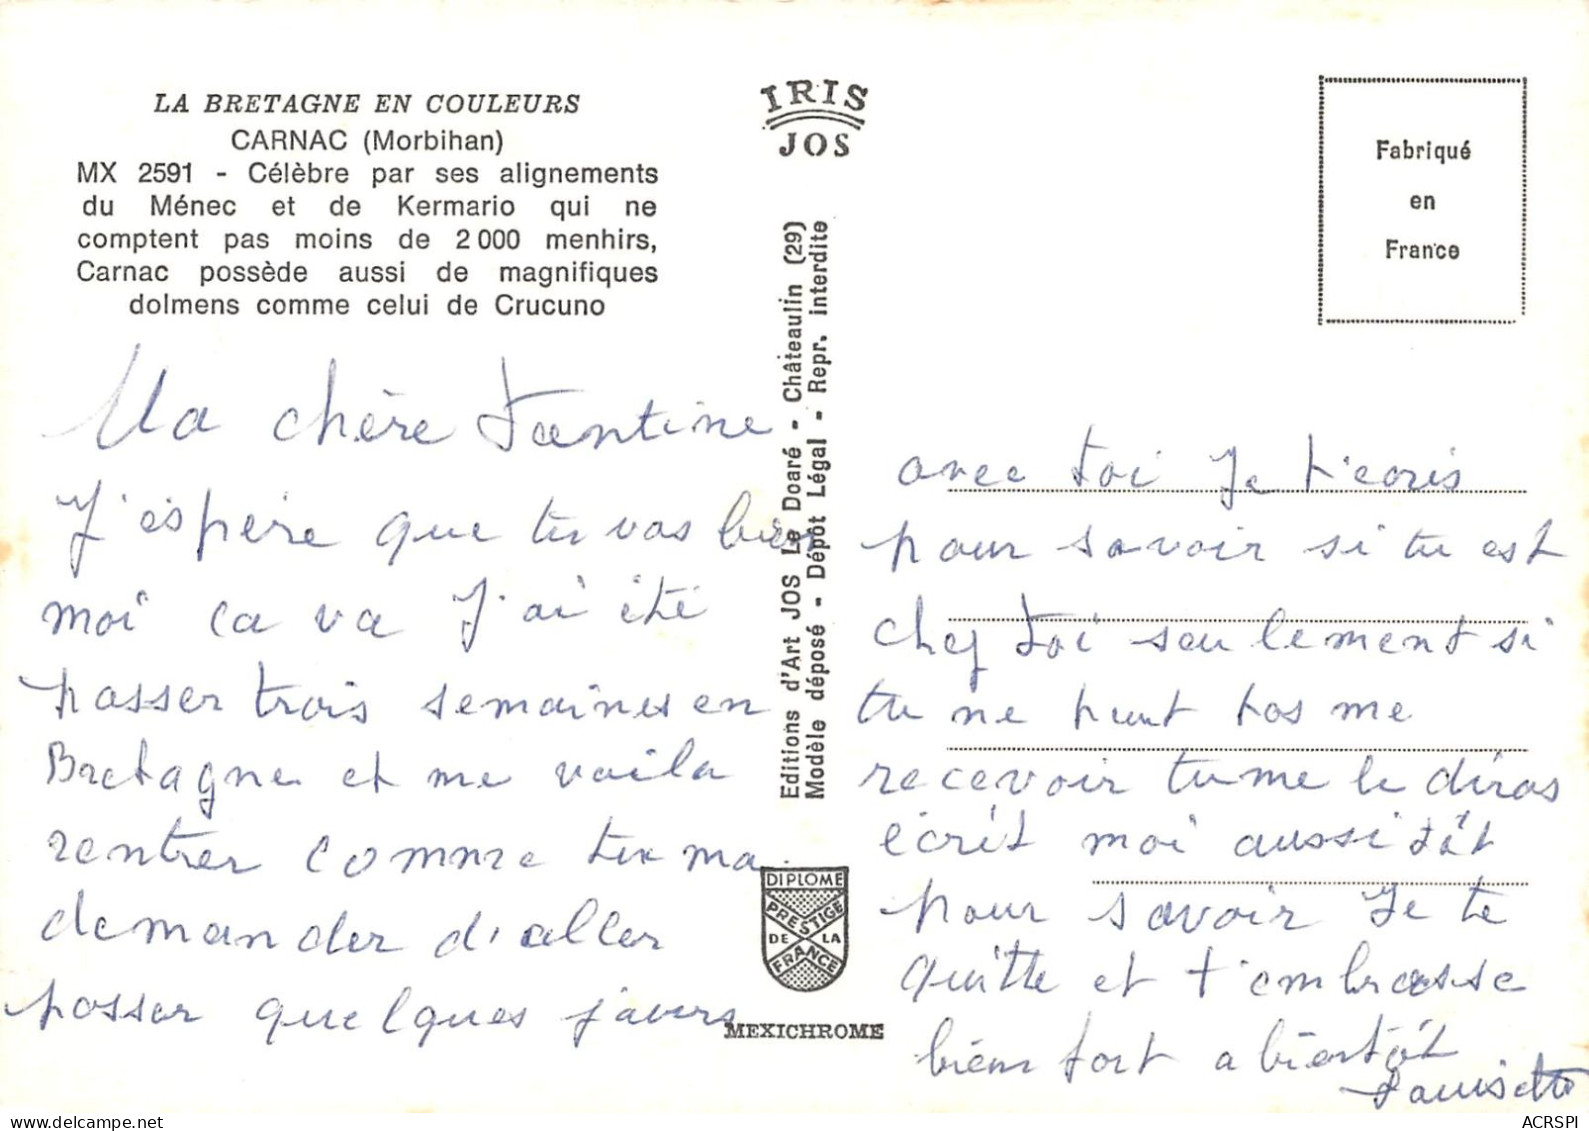 LA BRETAGNE EN COULEURS
CARNAC (Morbihan)
MX 2591 - Célèbre par ses alignements
du Ménec et de Kermario qui ne
comptent pas moins de 2 000 menhirs,
Carnac possède aussi de magnifiques
dolmens comme celui de Crucuno
Ma chère Tantine
J'éspère que tu vas bien
moi ca va J'ai été
passer trois semaines en
Bretagne et me voila
rentrer comme tu ma
demander d'aller
passer quelques jours
IRIS
JOS
Editions d'Art JOS Le Doaré - Châteaulin (29)
Modèle déposé - Dépôt Légal - Repr. interdite
DIPLOME
PRESTIGE
DE LA
FRANCE
MEXICHROME
Fabriqué
en
France
avec toi Je t'ecris
pour savoir si tu est
chez toi seulement si
tu ne peut pas me
recevoir tu me le diras
écrit moi aussi tôt
pour savoir Je te
quitte et t'embrasse
bien fort a bientôt
ACRSPI